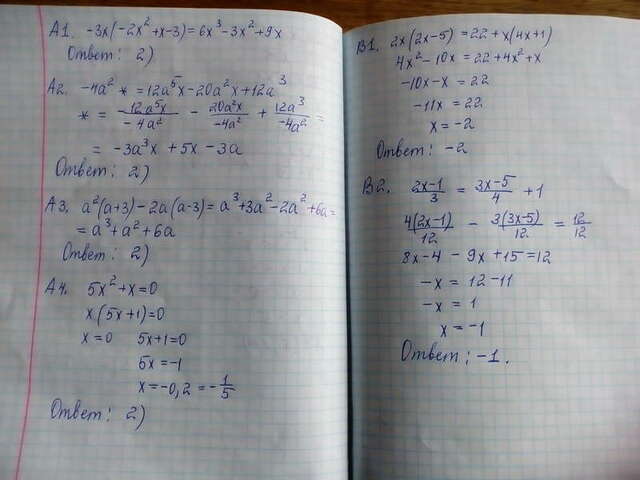 А1. -3x(-2x²+x-3)=6x³-3x²+9x
Ответ: 2)
А2. -4a² * =12a⁵x-20a²x+12a³
* = -12a⁵x/-4a² - 20a²x/-4a² + 12a³/-4a² =
= -3a³x + 5x - 3a
Ответ: 2)
А3. a²(a+3)-2a(a-3)=a³+3a²-2a²+6a=
=a³+a²+6a
Ответ: 2)
А4. 5x²+x=0
x(5x+1)=0
x=0 5x+1=0
5x=-1
x=-0,2=-1/5
Ответ: 2)
В1. 2x(2x-5)=22+x(4x+1)
4x²-10x=22+4x²+x
-10x-x=22
-11x=22
x=-2
Ответ: -2
В2. 2x-1/3 = 3x-5/4 +1
4(2x-1)/12 - 3(3x-5)/12 = 12/12
8x-4-9x+15=12
-x=12-11
-x=1
x=-1
Ответ: -1.